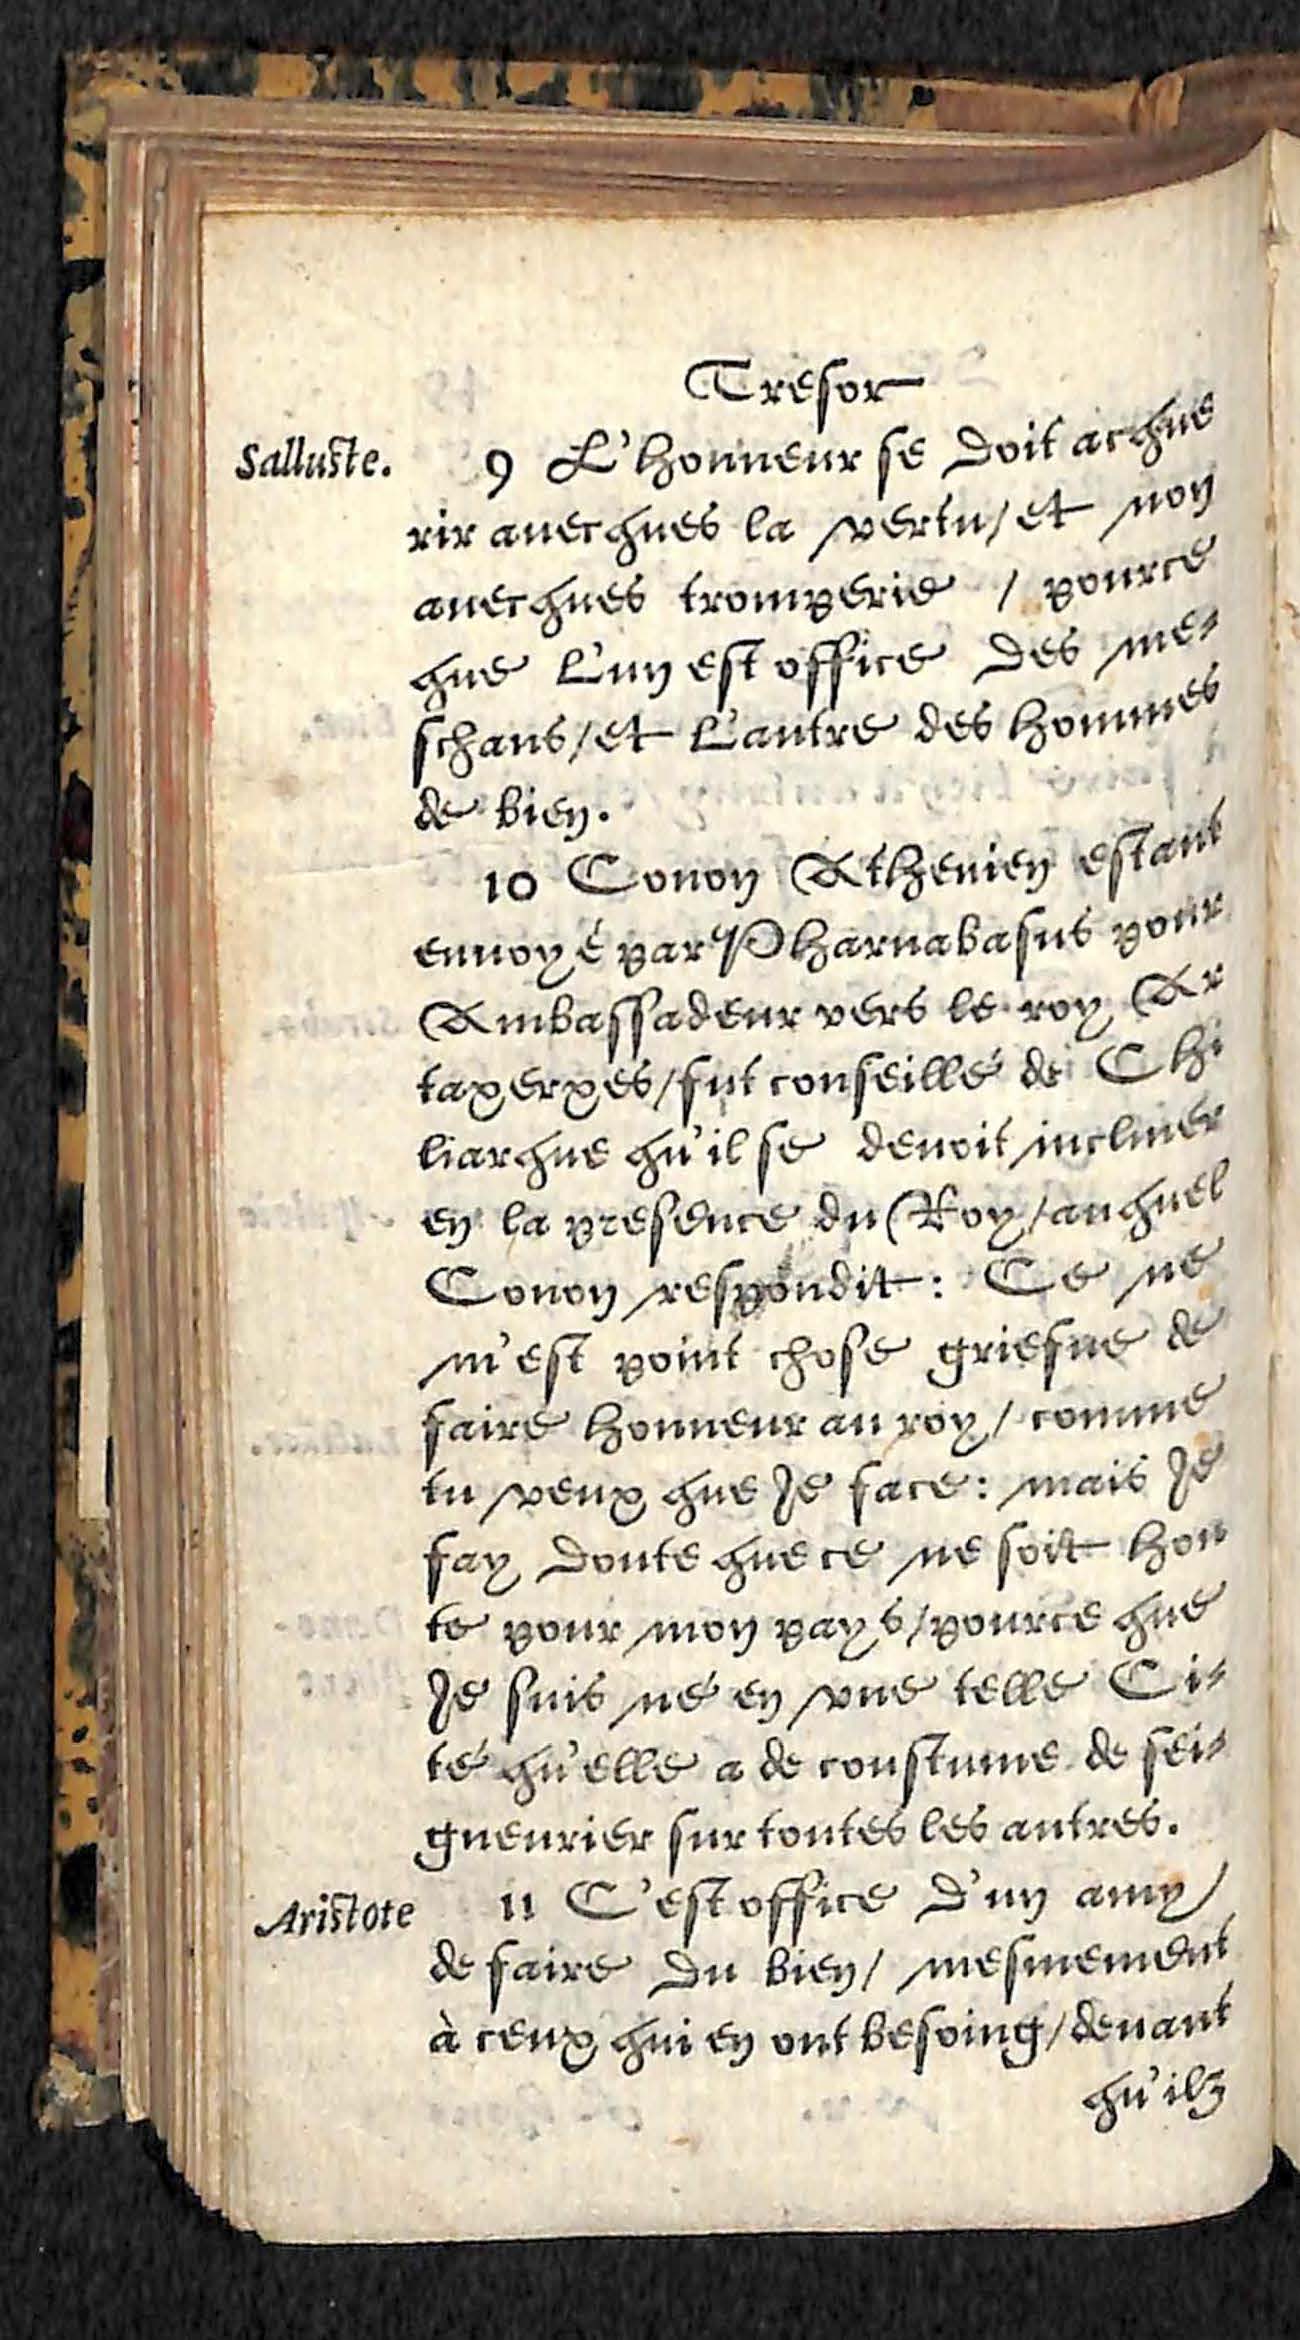 Tresor
Salluste. 9 L'honneur se doit acque
rir auecques la vertu/ et non
auecques tromperie / pource
que l'un est office des me-
schans/ et l'autre des hommes
de bien.
10 Conon Athenien estant
enuoyé par Pharnabasus pour
Ambassadeur vers le roy Ar
taxerxes/ fut conseillé de Chi
liarque qu'il se deuoit incliner
en la presence du Roy/ auquel
Conon respondit: Ce ne
m'est point chose griefue de
faire honneur au roy/ comme
tu veux que Je face: mais Je
fay doute que ce ne soit hon
te pour mon pays/ pource que
Je suis né en vne telle Ci-
té qu'elle a de coustume de sei-
gneurier sur toutes les autres.
Aristote 11 C'est office d'un amy/
de faire du bien/ mesmement
à ceux qui en ont besoing/ deuant
qu'ilz